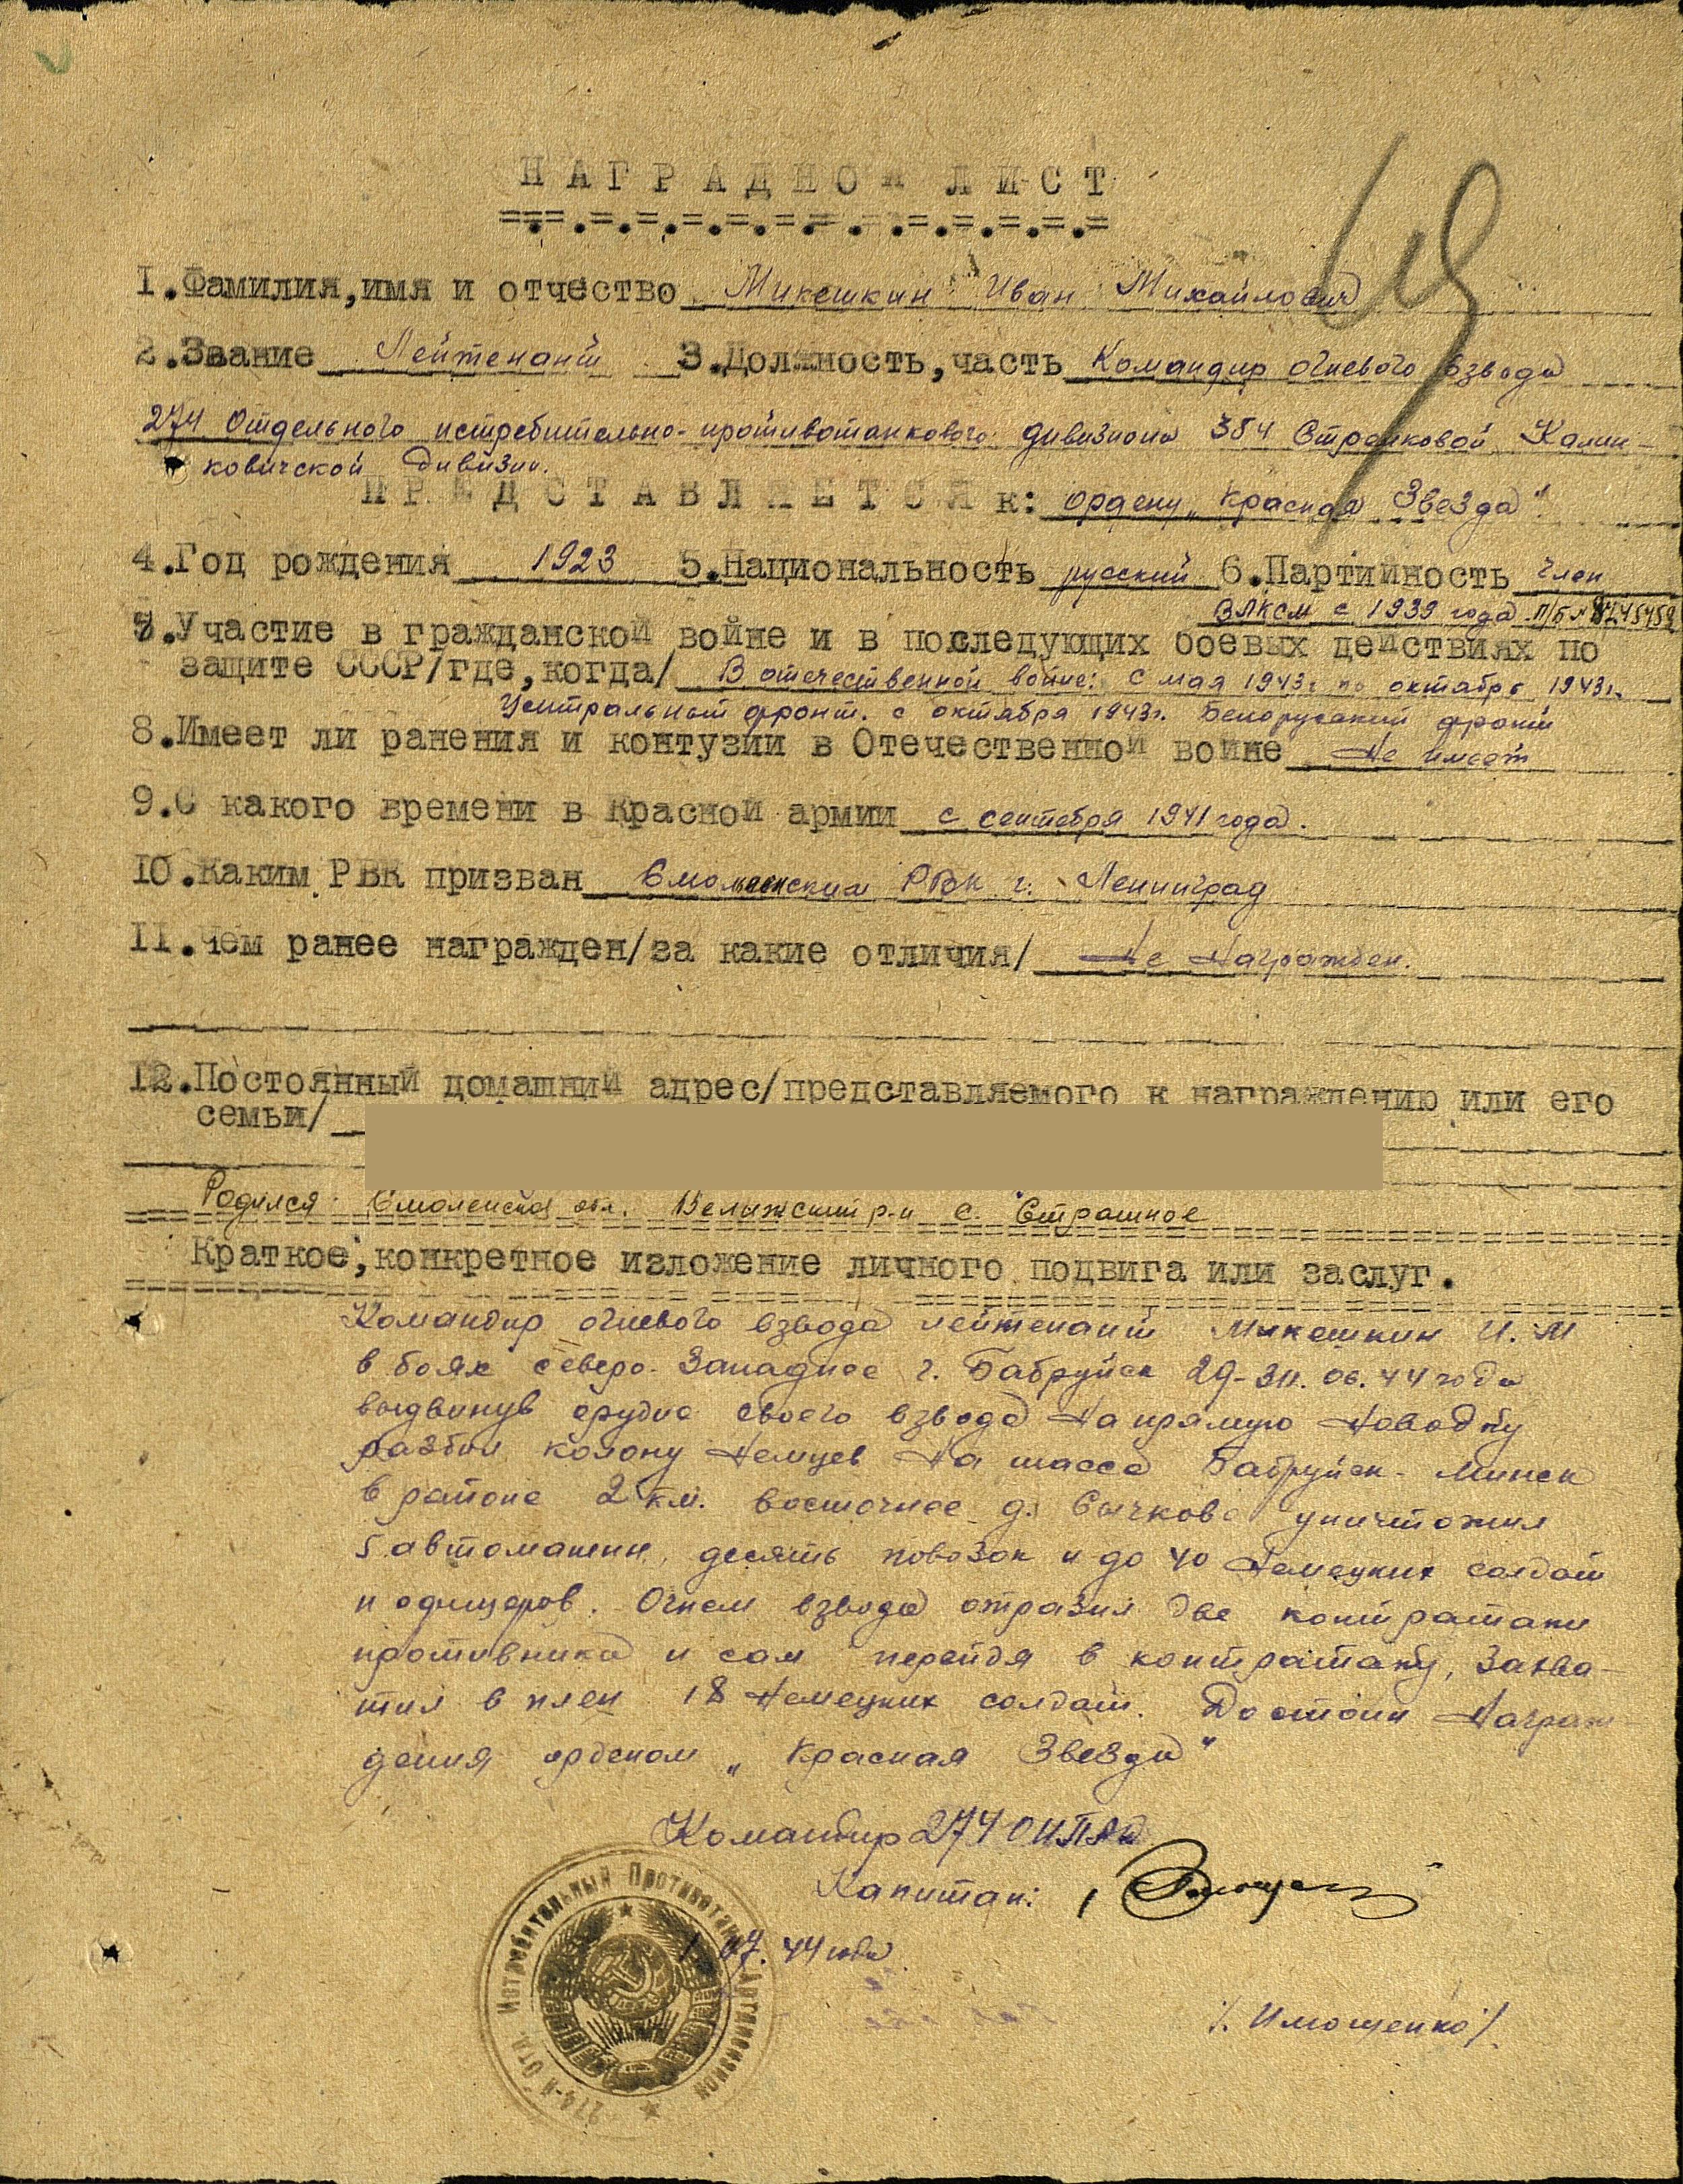 НАГРАДНОЙ ЛИСТ
1.Фамилия,имя и отчество Микешкин Иван Михайлович
2.Звание Лейтенант 3.Должность,часть Командир огневого взвода
274 Отдельного истребительно-противотанкового дивизиона 354 Стрелковой Калин-
ковичской Дивизии.
ПРЕДСТАВЛЯЕТСЯ к: ордену „Красная Звезда"
4.Год рождения 1923 5.Национальность русский 6.Партийность член
ВЛКСМ с 1939 года п/б №
7.Участие в гражданской войне и в последующих боевых действиях по
защите СССР/где,когда/ В отечественной войне: с мая 1943г по октябрь 1943г.
Центральный фронт. с октября 1943г. Белорусский фронт
8.Имеет ли ранения и контузии в Отечественной войне Не имеет
9.С какого времени в Красной армии с сентября 1941 года.
10.Каким РВК призван Смольнинским РВК г. Ленинград
11.Чем ранее награжден/за какие отличия/ Не Награжден.
12.Постоянный домашний адрес/представляемого к награждению или его
семьи/
Родился Смоленская обл. Велижский р-н с. Страшное
Краткое,конкретное изложение личного подвига или заслуг.
Командир огневого взвода лейтенант Микешкин И.М
в боях северо-Западнее г. Бабруйск 29-30.06.44 года
выдвинув орудие своего взвода На прямую Наводку
разбил колону Немцев На шассе Бабруйск-Минск
в районе 2 км. восточнее д. Сычково уничтожил
5 автомашин, десять повозок и до 40 Немецких солдат
и офицеров. Огнем взвода отразил две контратаки
противника и сам перейдя в контратаку, Захва-
тил в плен 18 Немецких солдат. Достоин Награж-
дения орденом „Красная Звезда"
Командир 274 ОИПТАД
Капитан:
1.07.44 года
/Имощенко/
274-й Отд. Истребительный Противотанк. Артдивизион